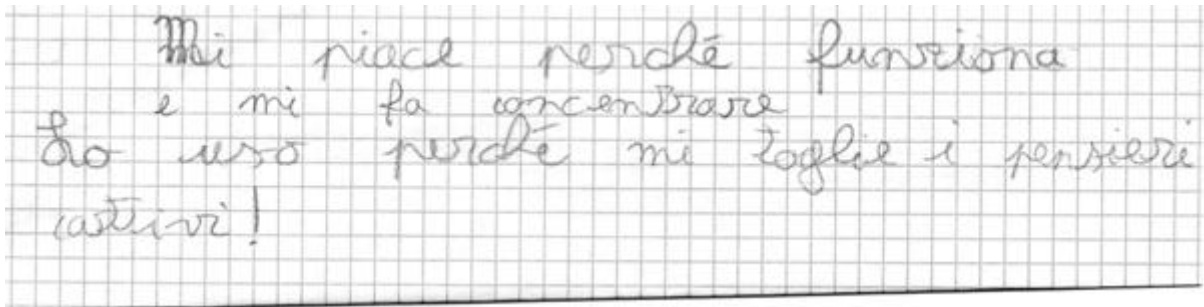 Mi piace perché funziona
e mi fa concentrare
Lo uso perché mi toglie i pensieri
cattivi!